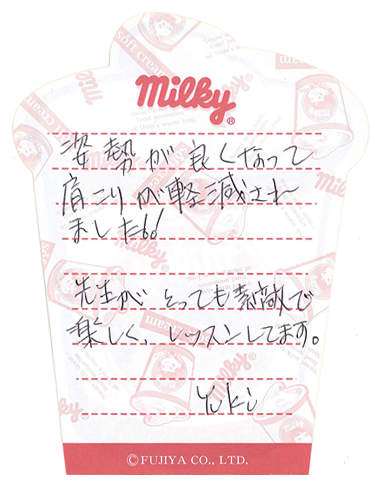 milky®
姿勢が良くなって
肩こりが軽減され
ました!!
先生が とっても素敵で
楽しく、レッスンしてます。
Yuki
©FUJIYA CO., LTD.